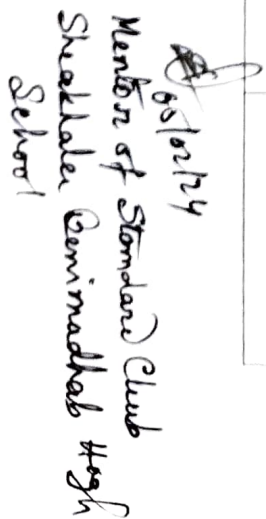 05/02/24
Mentor of Standard Club
Sheakhala Benimadhab High
School